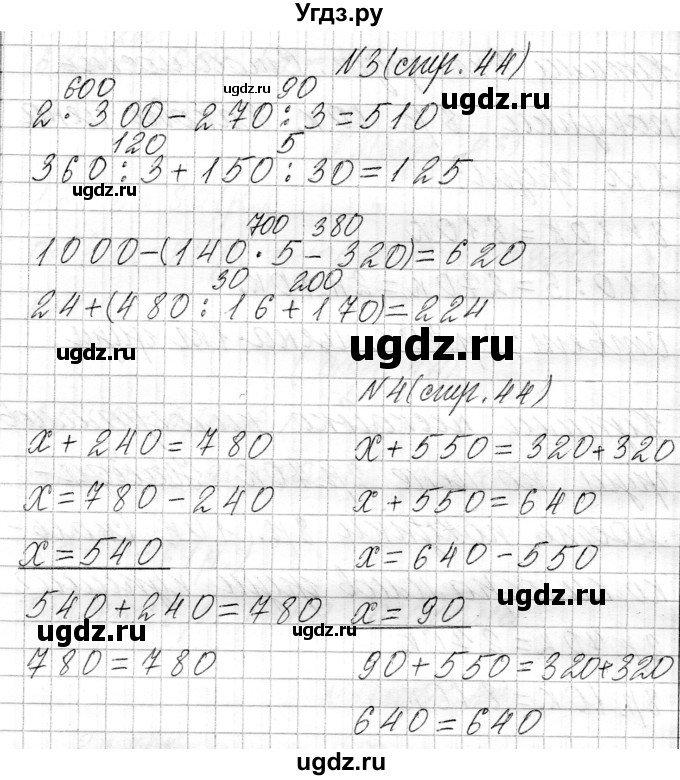 Угдз.ру
N3(стр. 44)
ugdz.ru
ugdz.ru
600 90
2 · 300 - 270 : 3 = 510
120 5
360 : 3 + 150 : 30 = 125
ugdz.ru
700 380
1000 - (140 · 5 - 320) = 620
30 200
24 + (480 : 16 + 170) = 224
ugdz.ru
ugdz.ru
N4(стр. 44)
x + 240 = 780
x + 550 = 320 + 320
x = 780 - 240
x + 550 = 640
x = 540
x = 640 - 550
ugdz.ru
540 + 240 = 780
x = 90
ugdz.ru
ugdz.ru
780 = 780
90 + 550 = 320 + 320
640 = 640
ugdz.ru